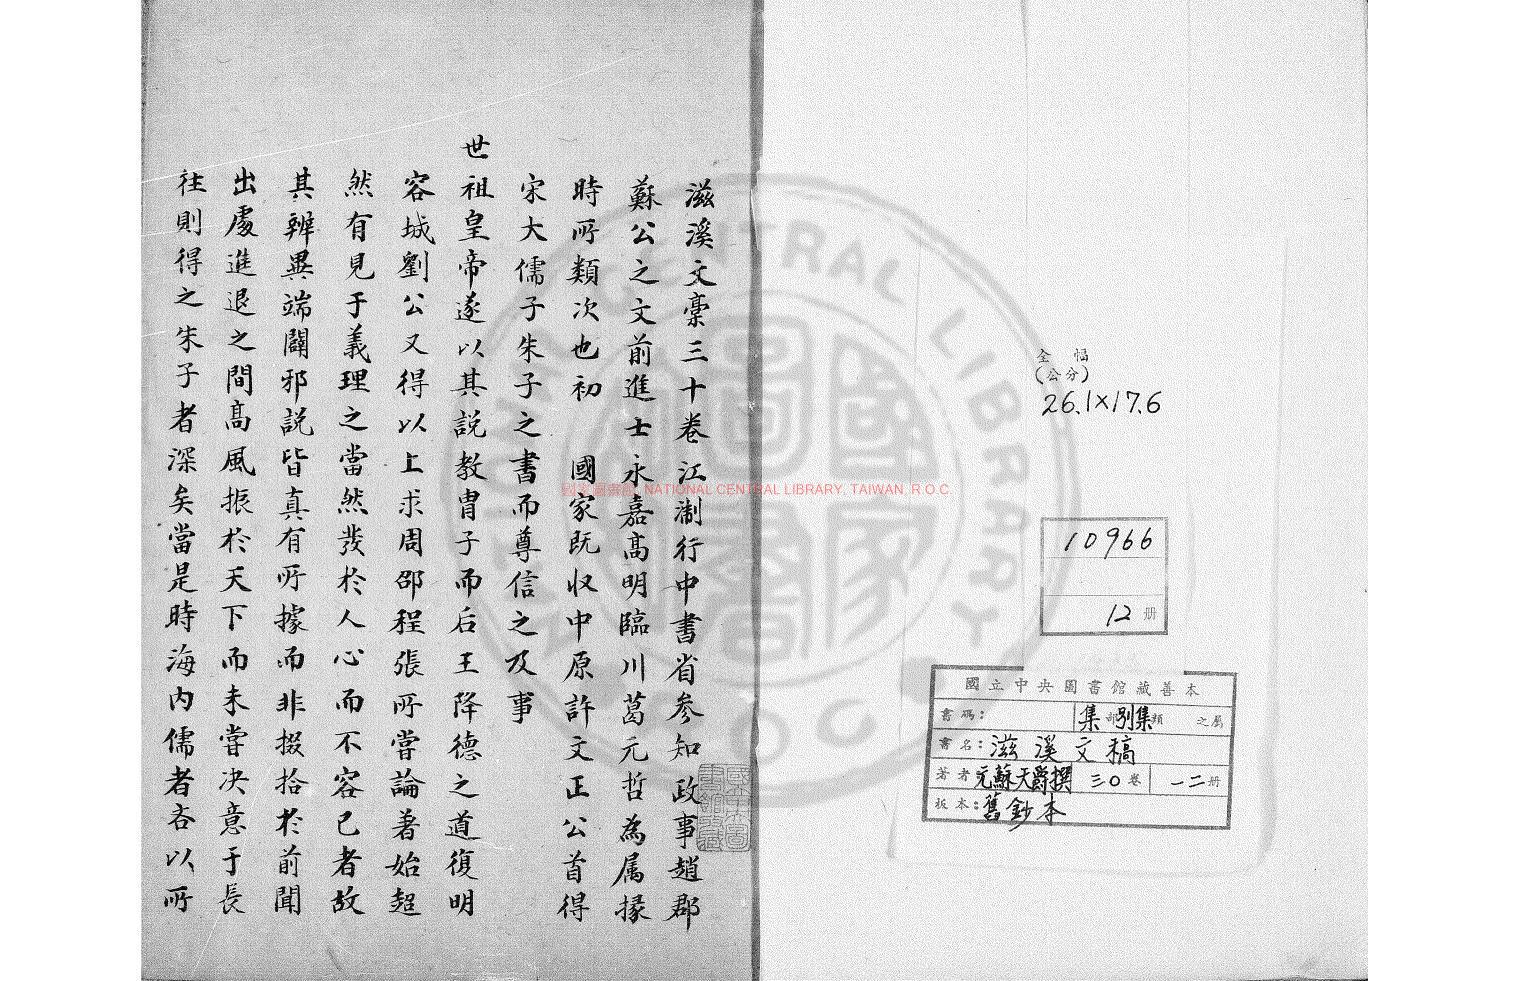 全幅
(公分)
26.1×17.6
10966
12 册
國立中央圖書館藏善本
書碼： 集部別集類 之屬
書名：滋溪文稿
著者 元蘇天爵撰 三〇卷 一二册
板本：舊鈔本
滋溪文稾三十卷江淛行中書省参知政事趙郡
蘇公之文前進士永嘉高明臨川葛元哲為属掾
時所類次也初 國家既収中原許文正公首得
宋大儒子朱子之書而尊信之及事
世祖皇帝遂以其説教胄子而后王降德之道復明
容城劉公又得以上求周邵程張所當論著始超
然有見于義理之當然發於人心而不容已者故
其辨異端闢邪説皆真有所據而非掇拾於前聞
出處進退之間高風振於天下而未嘗决意于長
往則得之朱子者深矣當是時海内儒者各以所
國家圖書館, NATIONAL CENTRAL LIBRARY, TAIWAN, R.O.C.
NATIONAL CENTRAL LIBRARY
R.O.C.